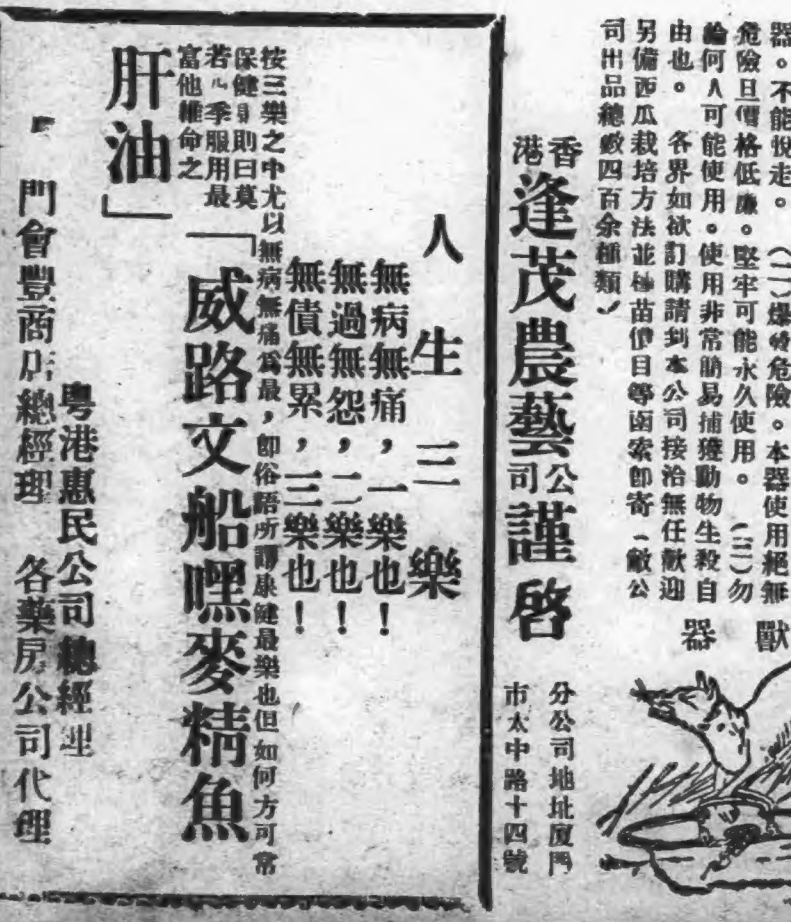 器。不能悅走。 (二)爆發危險。本器使用絕無
危險且價格低廉。堅牢可能永久使用。 (三)勿
論何人可能使用。使用非常簡易捕獲動物生殺自
由也。 各界如欲訂購請到本公司接洽無任歡迎
另備西瓜栽培方法並種苗價目等函索即寄(敝公
司出品總數四百余種類)
獸
器
香港 逢茂農藝公司 謹啓
分公司地址廈門
市太中路十四號
人生三樂
無病無痛,一樂也!
無過無怨,二樂也!
無債無累,三樂也!
按三樂之中尤以無病無痛為最,即俗語所謂康健最樂也但如何方可常
保健則曰莫
若四季服用最
富他維命之
「威路文船嘿麥精魚
肝油」
粵港惠民公司總經理
門會豐商店總經理 各藥房公司代理